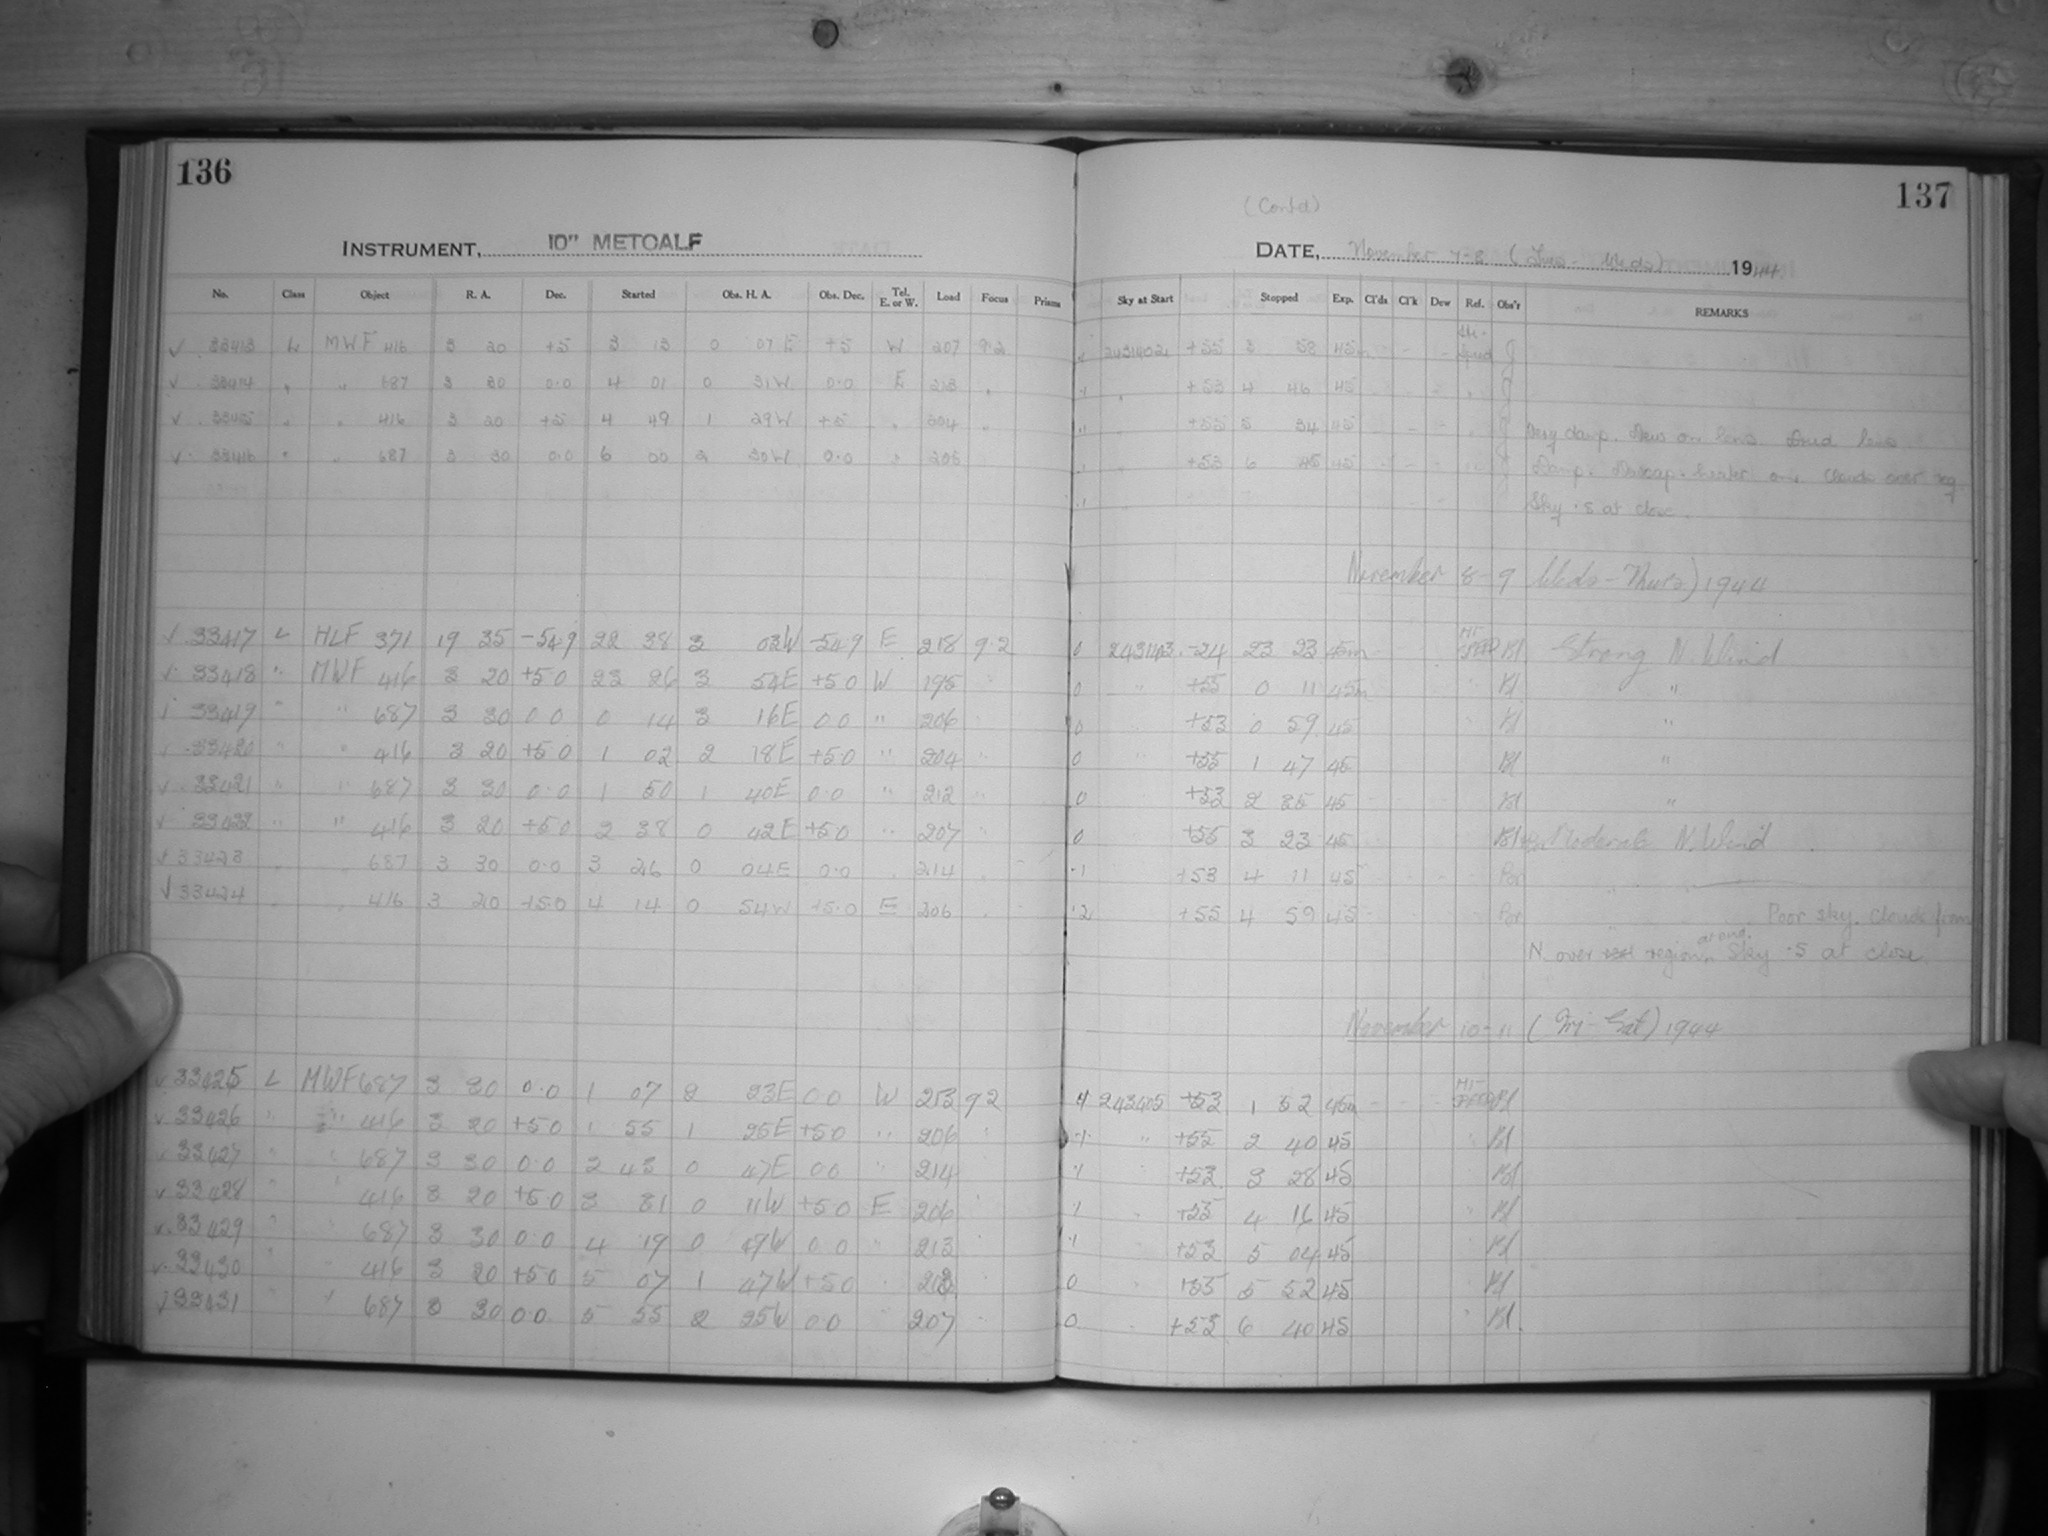 136
INSTRUMENT, 10" METCALF
No. Class Object R. A. Dec. Started Obs. H. A. Obs. Dec. Tel. E. or W. Load Focus Prisms
√ 33413 L MWF 416 3 20 +5 3 13 0 07 E +5 W 207 9.2
√ 33414 " " 687 3 30 0.0 4 01 0 31W 0.0 E 213 "
√ 33415 " " 416 3 20 +5 4 49 1 29W +5 " 204 "
√ 33416 " " 687 3 30 0.0 6 00 2 30W 0.0 "
√ 33417 L HLF 371 19 35 -54.9 22 38 3 02W -54.9 E 218 9.2
√ 33418 " MWF 416 3 20 +5.0 23 26 3 54E +5.0 W 195 "
33419 " " 687 3 30 0.0 0 14 3 16E 0.0 " 206 "
√ 33420 " " 416 3 20 +5.0 1 02 2 18E +5.0 " 204 "
√ 33421 " " 687 3 30 0.0 1 50 1 40E 0.0 " 212 "
√ 33422 " " 416 3 20 +5.0 2 38 0 42E +5.0 " 207 "
√ 33423 " " 687 3 30 0.0 3 26 0 04E 0.0 " 214 "
√ 33424 " " 416 3 20 +5.0 4 14 0 54W +5.0 E 206 "
√ 33425 L MWF 687 3 30 0.0 1 07 2 23E 0.0 W 213 9.2
√ 33426 " " 416 3 20 +5.0 1 55 1 25E +5.0 " 206 "
√ 33427 " " 687 3 30 0.0 2 43 0 47E 0.0 " 214
√ 33428 " " 416 3 20 +5.0 3 31 0 11W +5.0 E 206 "
√ 33429 " " 687 3 30 0.0 4 19 0 49W 0.0 " 213 "
√ 33430 " " 416 3 20 +5.0 5 07 1 47W +5.0 "
√ 33431 " " 687 3 30 0.0 5 55 2 35W 0.0 " 207 "
137
(Contd)
DATE, November 7-8 (Tues - Weds) 1944
Sky at Start Stopped Exp. Cl'ds Cl'k Dew Ref. Obs'r REMARKS
2431402 +55 3 58 45m - - - J
.1 " +53 4 46 45 J
" +55 5 34 45 - - " J Very damp. Dew on lens. Dried lens.
" +53 6 45 45 - - J Damp. Dewcap heater on. Clouds over reg.
Sky .5 at close.
November 8-9 Weds-Thurs) 1944
0 -24 23 23 45m Bl Strong N. Wind
0 " +55 0 11 45m " Bl "
0 " +53 0 59 45 " Bl "
0 " +55 1 47 45 Bl "
0 " +53 2 35 45 Bl "
0 +55 3 23 45 Moderate N. Wind
.1 +53 4 11 45 Par
.2 +55 4 59 45 Par " Poor sky. Clouds from
N. over region at end. Sky .5 at close.
November 10-11 (Fri-Sat) 1944
.1 +53 1 52 45m Bl
.1 " +55 2 40 45 " Bl
.1 +53 3 28 45 Bl
.1 " +55 4 16 45 " Bl
.1 " +53 5 04 45 Bl
0 " +55 5 52 45 Bl
0 " +53 6 40 45 " Bl.